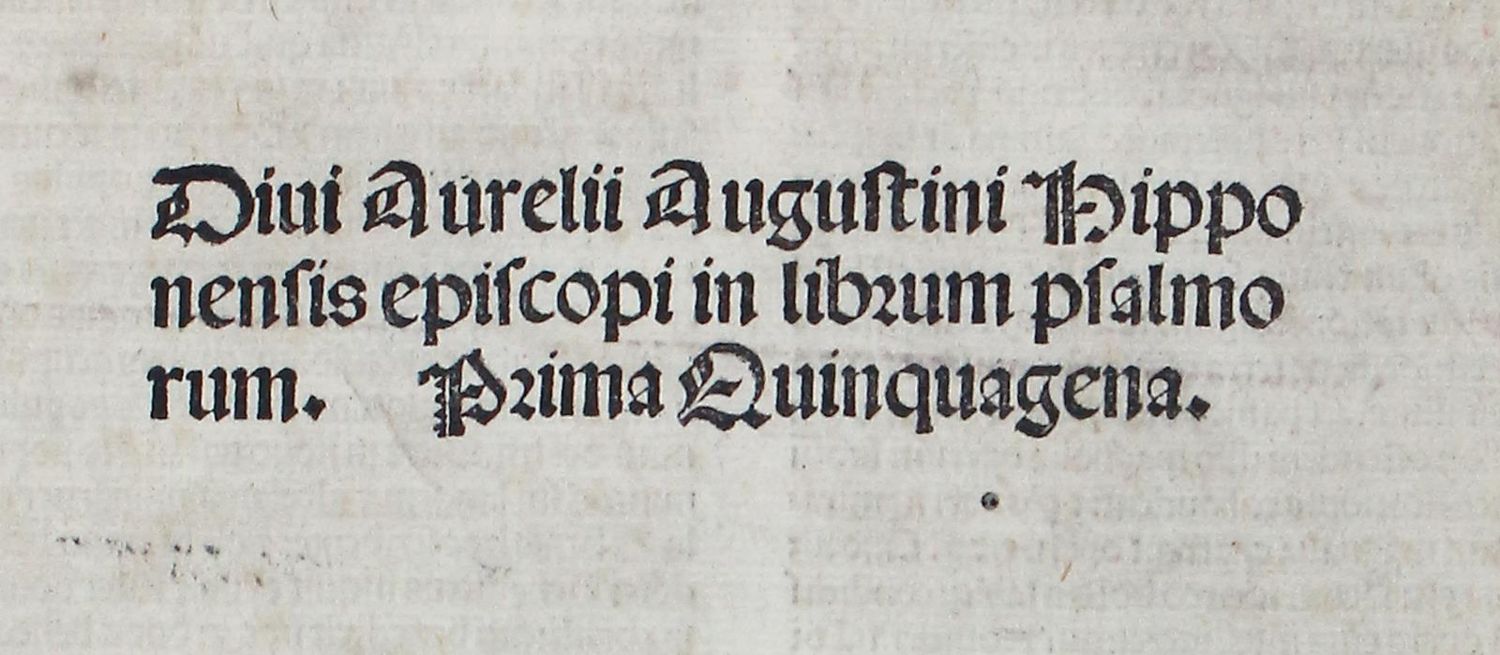 Diui Aurelii Auguſtini Hippo
nenſis epiſcopi in librum pſalmo
rum. Prima Quinquagena.